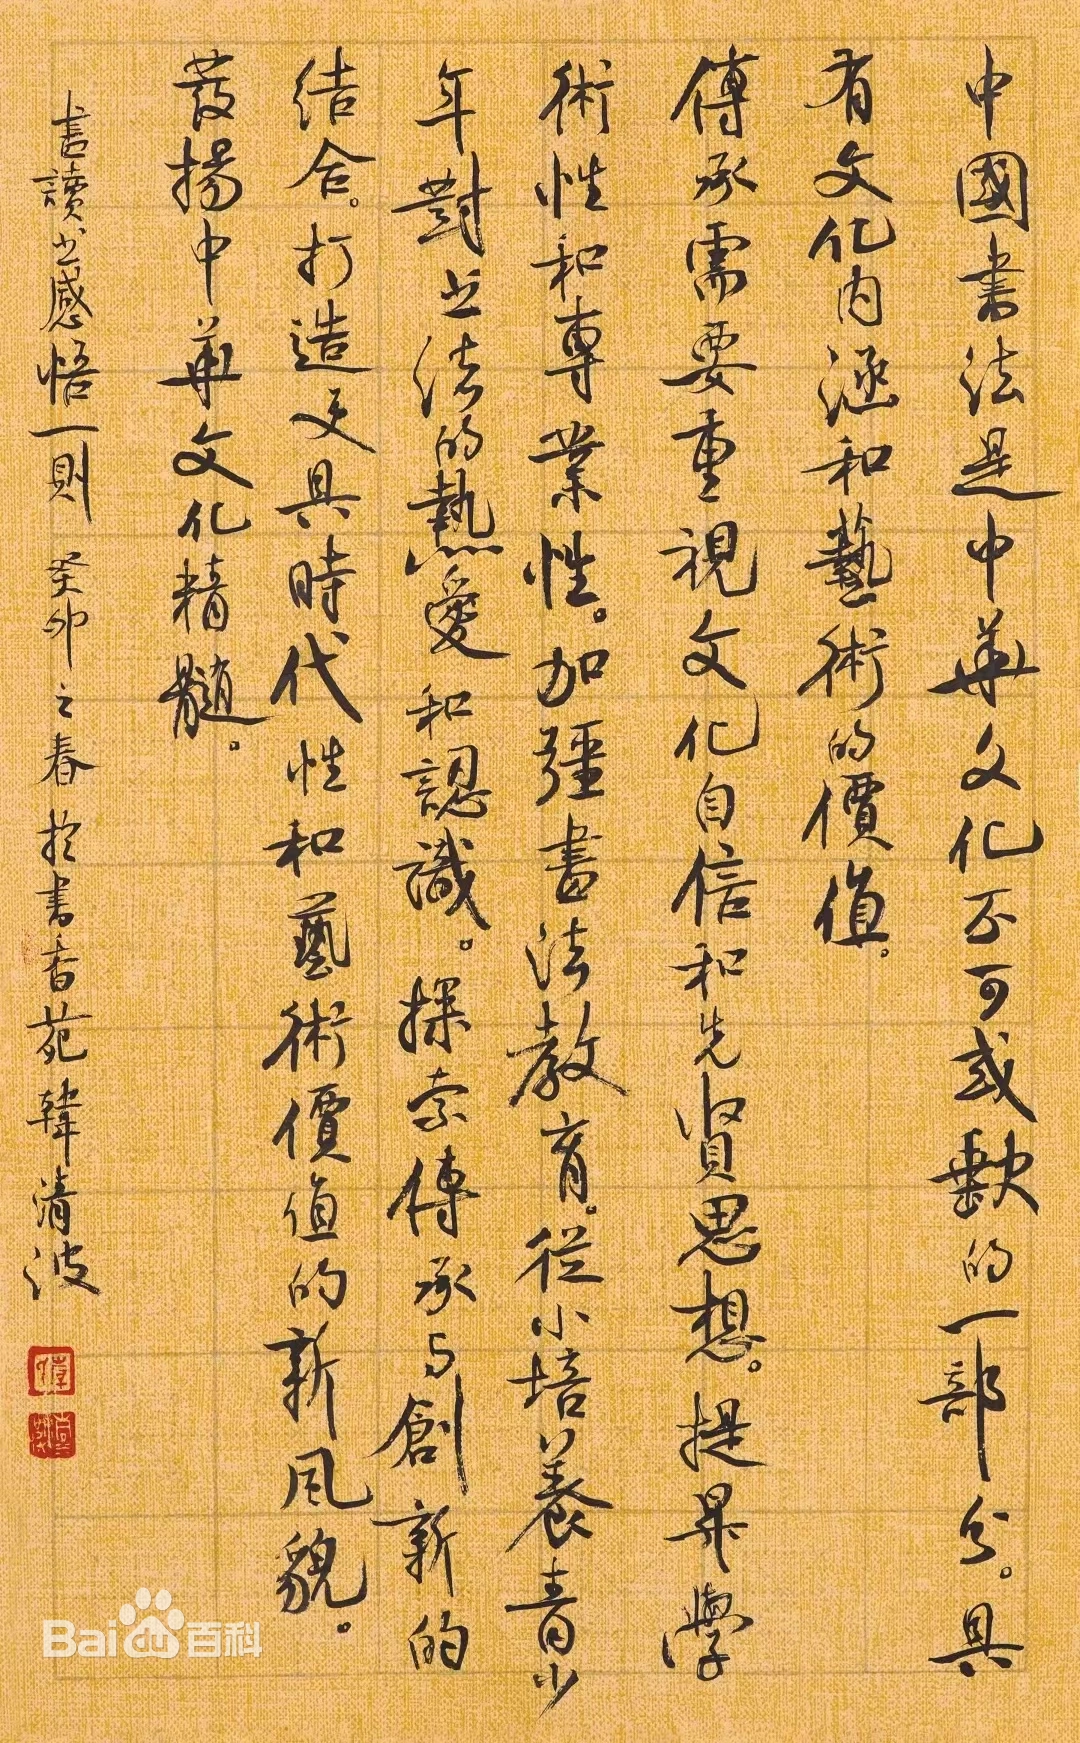 中國書法是中華文化不可或缺的一部分。具
有文化内涵和藝術的價值。
傳承需要重視文化自信和先贤思想。提昇學
術性和專業性。加强書法教育。從小培養青少
年對书法的熱愛和認識。探索傳承与創新的
結合。打造更具時代性和藝術價值的新風貌。
發揚中華文化精髓。
書讀书感悟一則 癸卯之春於書香苑韓清波
Bai百科